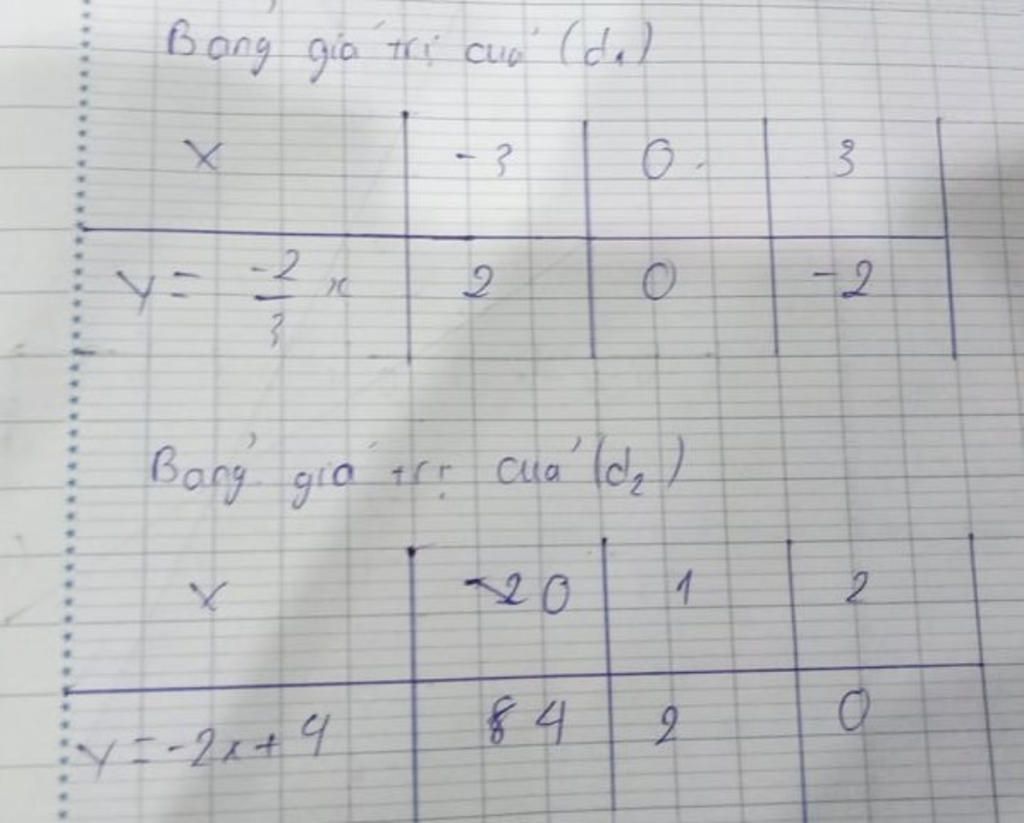 Bảng giá trị của (d₁)
x -3 0 3
y = -2/3 x 2 0 -2
Bảng giá trị của (d₂)
x 0 1 2
y = -2x + 4 4 2 0